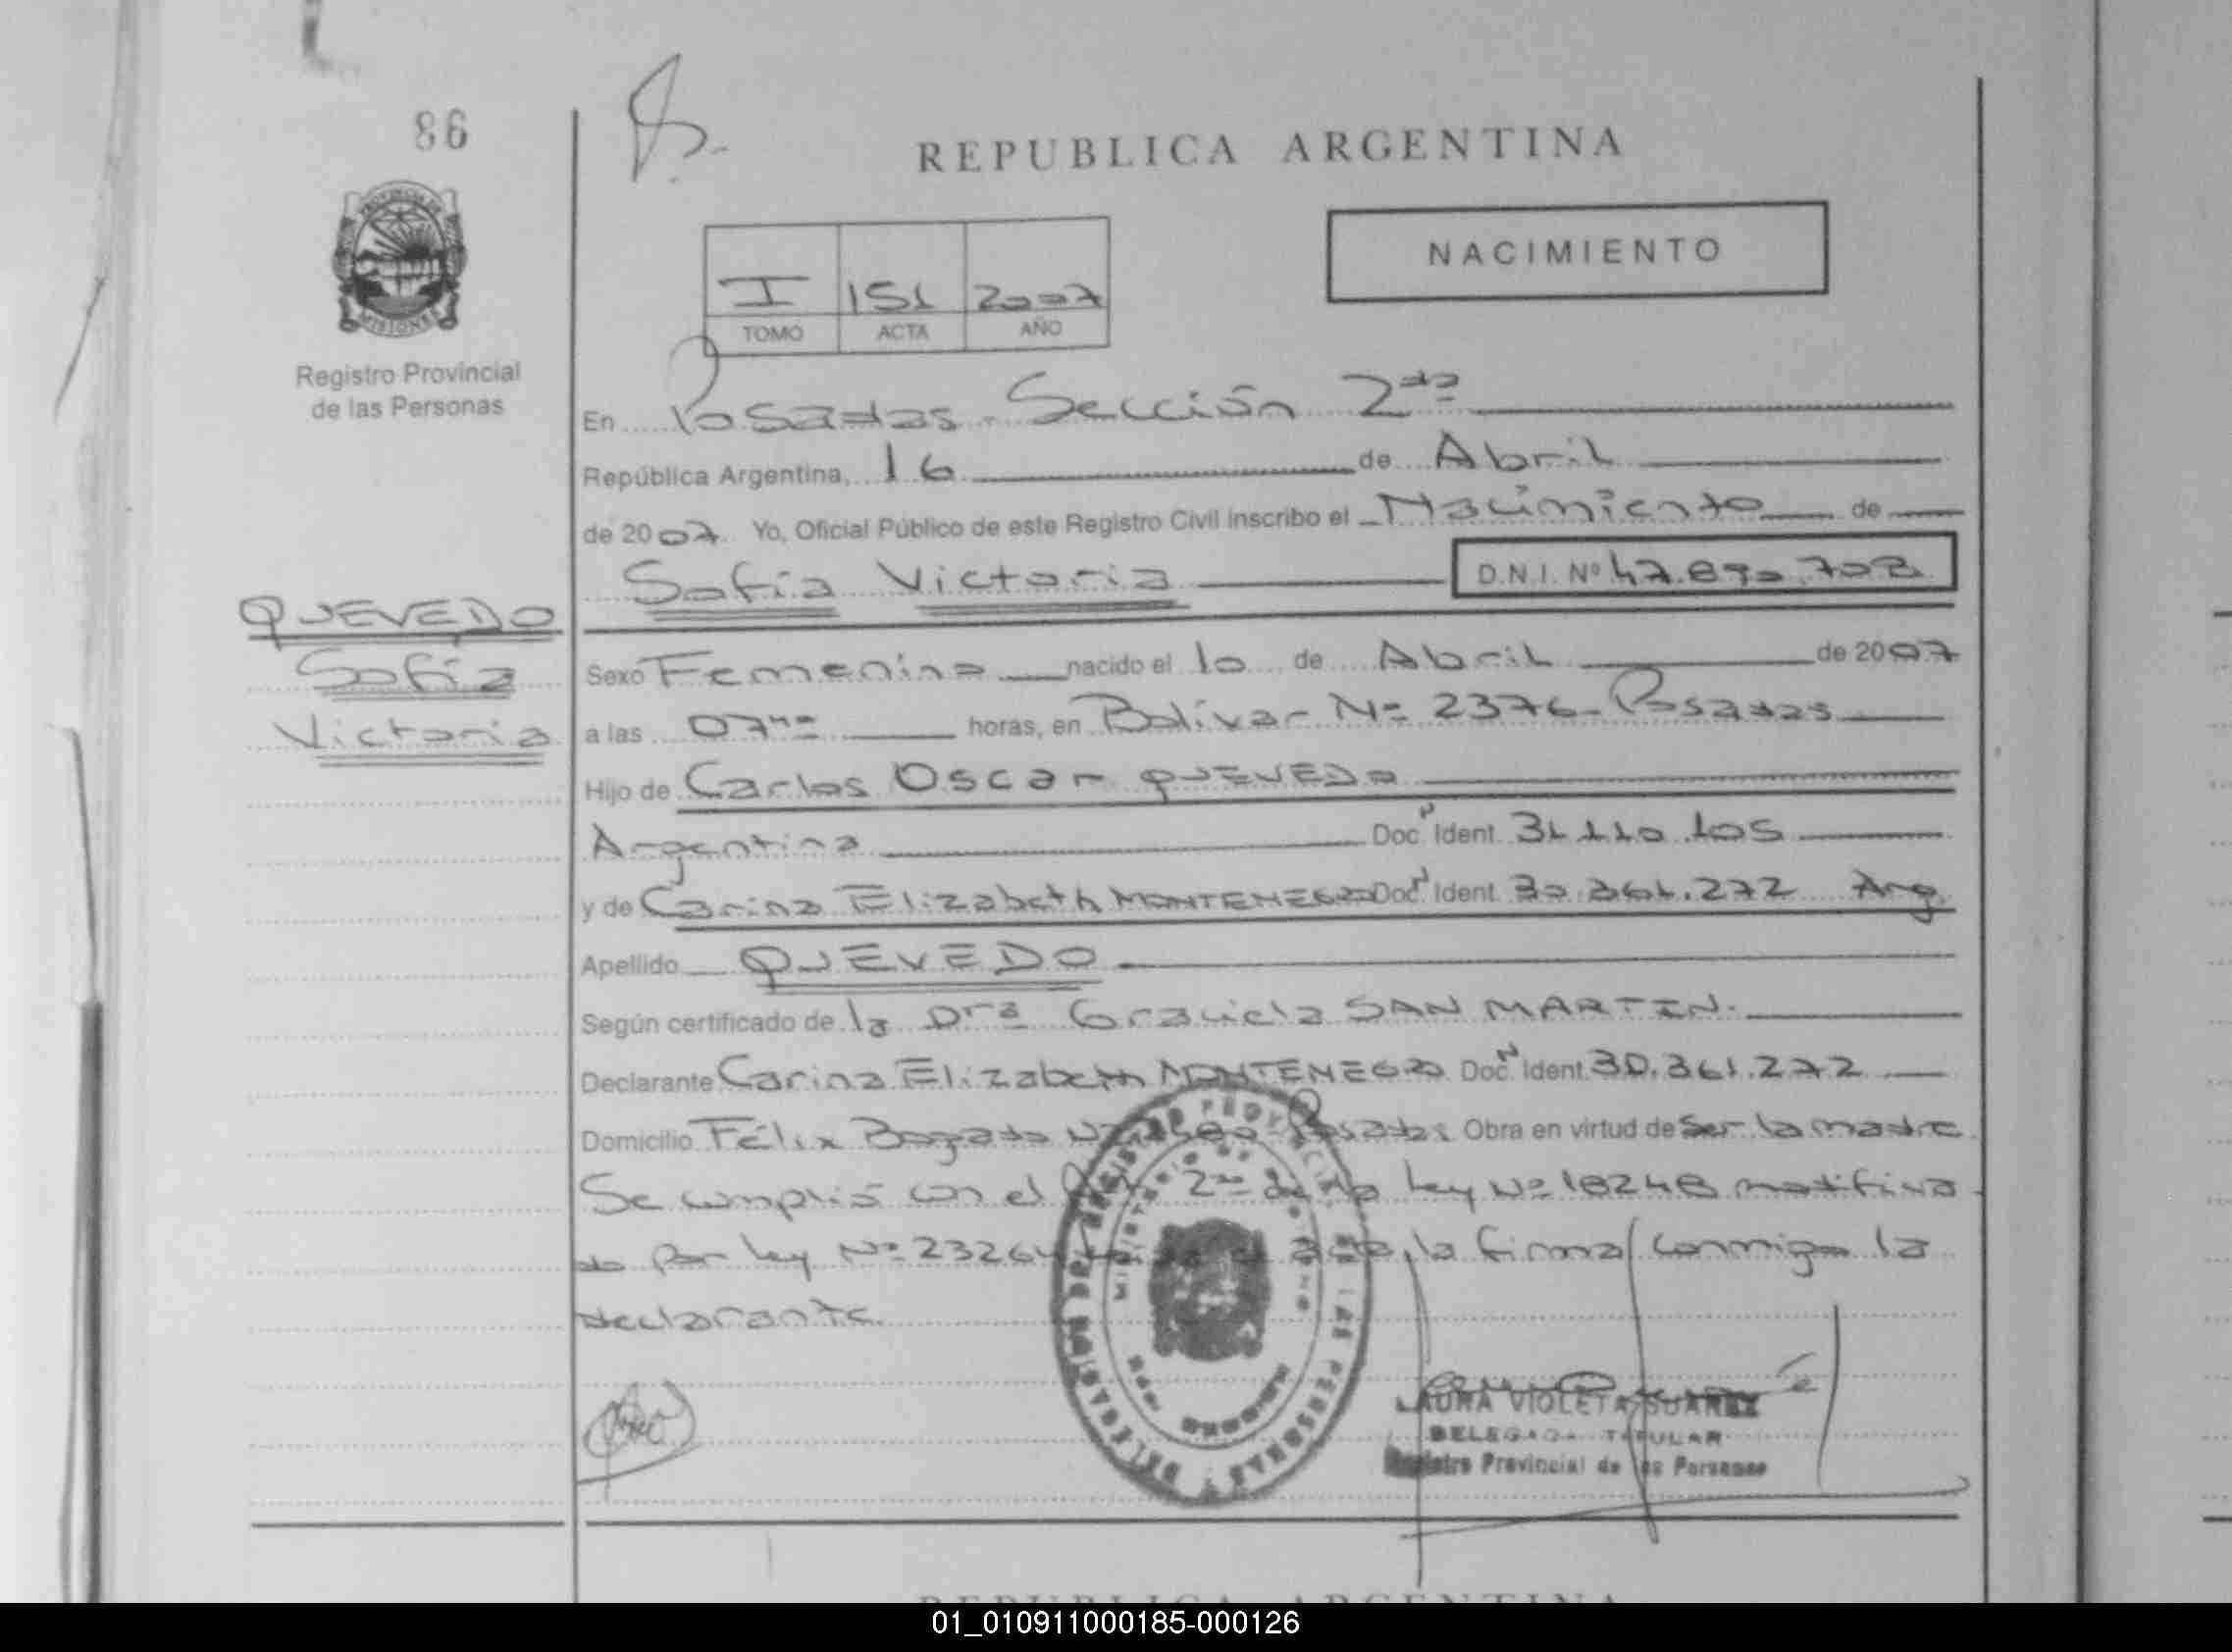 86
REPUBLICA ARGENTINA
PROVINCIA DE
MISIONES
NACIMIENTO
I 151 2007
TOMO ACTA AÑO
Registro Provincial
de las Personas
En Posadas - Sección 2da
República Argentina, 16 de Abril
de 2007 Yo, Oficial Público de este Registro Civil inscribo el Nacimiento de
Sofía Victoria D.N.I. Nº 47.890.708
QUEVEDO
Sofía
Victoria
Sexo Femenino nacido el 10 de Abril de 2007
a las 07 horas, en Bolívar Nº 2376 - Posadas
Hijo de Carlos Oscar QUEVEDO
Argentina Doc N Ident. 31.110.105
y de Carina Elizabeth MONTENEGRO Doc N Ident. 30.361.272 Arg.
Apellido QUEVEDO
Según certificado de la Dra Graciela SAN MARTIN.
Declarante Carina Elizabeth MONTENEGRO Doc. N Ident. 30.361.272
Domicilio Félix Bogado Posadas Obra en virtud de ser la madre
Se cumplió con el 2do de la ley Nº 18248 modifica
do por ley Nº 23264 acta, la firma conmigo la
declarante.
LAURA VIOLETA SUAREZ
DELEGADA TITULAR
Registro Provincial de las Personas
REPUBLICA ARGENTINA
01_010911000185-000126